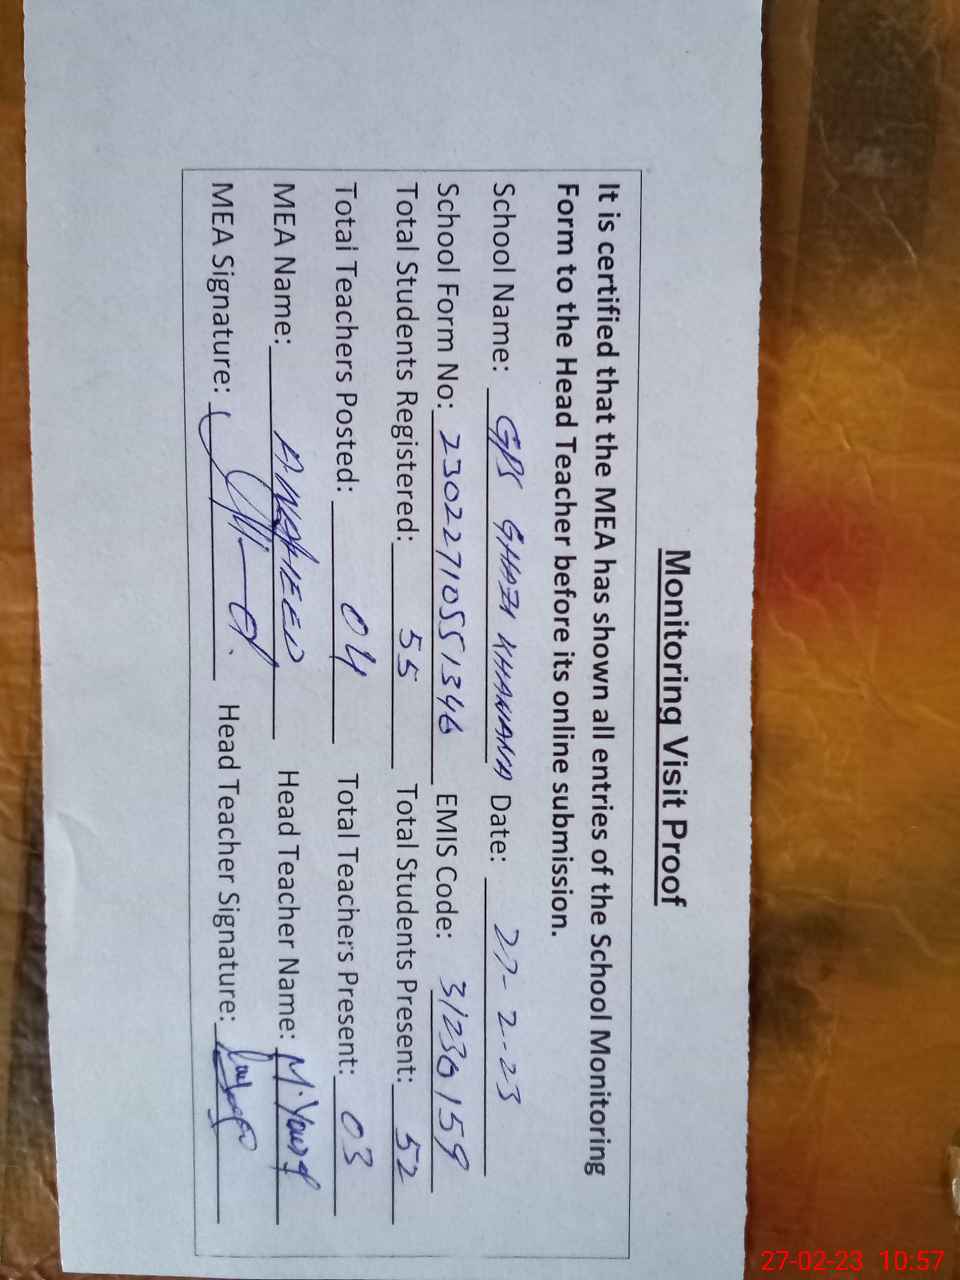 Monitoring Visit Proof
It is certified that the MEA has shown all entries of the School Monitoring
Form to the Head Teacher before its online submission.
School Name: GPS GHAZI KHANANA Date: 27-2-23
School Form No: 23022710551346 EMIS Code: 31230159
Total Students Registered: 55 Total Students Present: 52
Total Teachers Posted: 04 Total Teachers Present: 03
MEA Name: A.WAHEED Head Teacher Name: M.Yousf
MEA Signature: Head Teacher Signature:
27-02-23 10:57